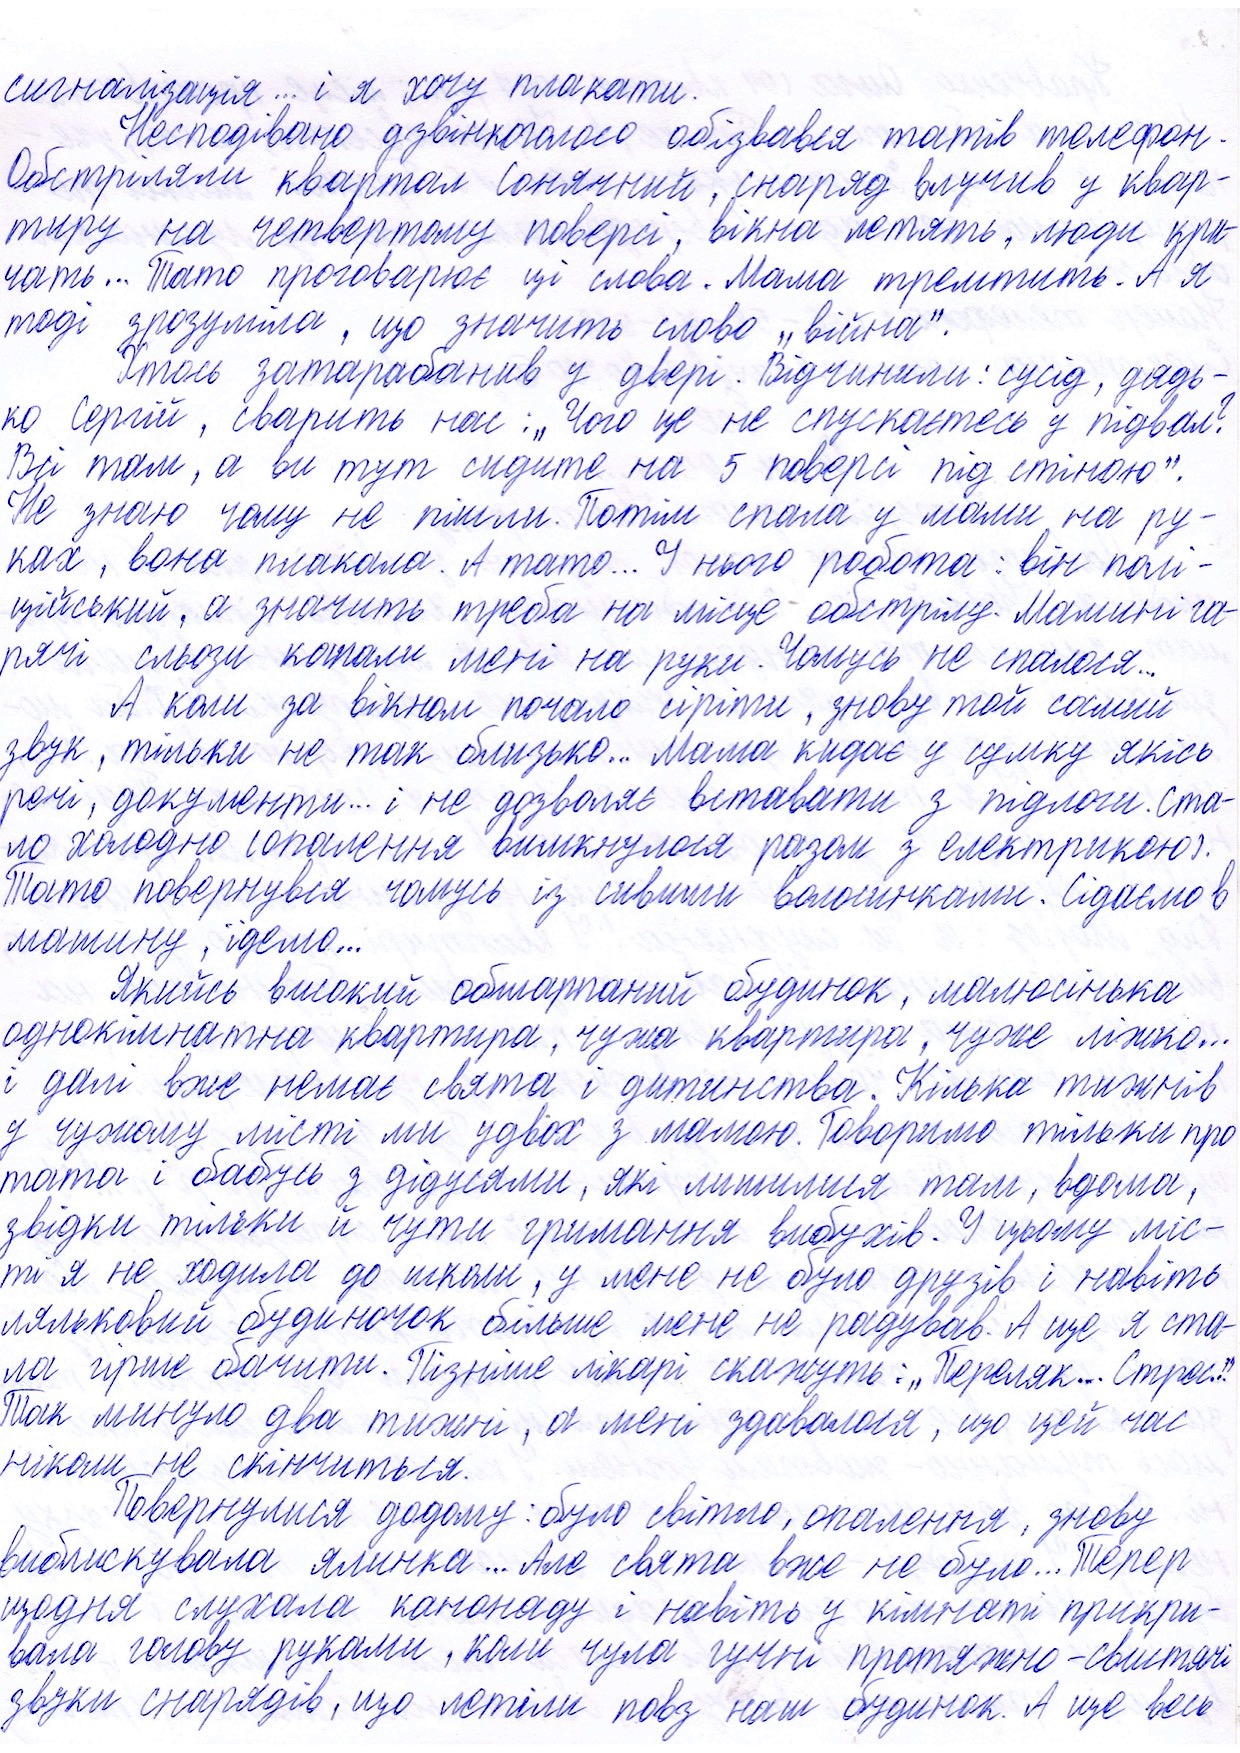 сигналізація... і я хочу плакати.
Несподівано дзвінкоголосо обізвався татів телефон.
Обстріляли квартал Сонячний, снаряд влучив у квар-
тиру на четвертому поверсі, вікна летять, люди кри-
чать... Тато проговарює ці слова. Мама тремтить. А я
тоді зрозуміла, що значить слово „війна".
Хтось затарабанив у двері. Відчинили: сусід, дядь-
ко Сергій, сварить нас: „Чого це не спускаєтесь у підвал?
Всі там, а ви тут сидите на 5 поверсі під стіною".
Не знаю чому не пішли. Потім спала у мами на ру-
ках, вона плакала. А тато... У нього робота: він полі-
ційський, а значить треба на місце обстрілу. Мамині га-
рячі сльози капали мені на руки. Чомусь не спалося...
А коли за вікном почало сіріти, знову той самий
звук, тільки не так близько... Мама кидає у сумку якісь
речі, документи... і не дозволяє вставати з підлоги. Ста-
ло холодно (опалення вимкнулося разом з електрикою).
Тато повернувся чомусь із сивими волосинками. Сідаємо в
машину, їдемо...
Якийсь високий обшарпаний будинок, малюсінька
однокімнатна квартира, чужа квартира, чуже ліжко...
і далі вже немає свята і дитинства. Кілька тижнів
у чужому місті ми удвох з мамою. Говоримо тільки про
тата і бабусь з дідусями, які лишилися там, вдома,
звідки тільки й чути гримання вибухів. У цьому міс-
ті я не ходила до школи, у мене не було друзів і навіть
ляльковий будиночок більше мене не радував. А ще я ста-
ла гірше бачити. Пізніше лікарі скажуть: „Переляк... Стрес.."
Так минуло два тижні, а мені здавалося, що цей час
ніколи не скінчиться.
Повернулися додому: було світло, опалення, знову
виблискувала ялинка... Але свята вже не було... Тепер
щодня слухала канонаду і навіть у кімнаті прикри-
вала голову руками, коли чула гучні протяжно-свистячі
звуки снарядів, що летіли повз наш будинок. А ще весь